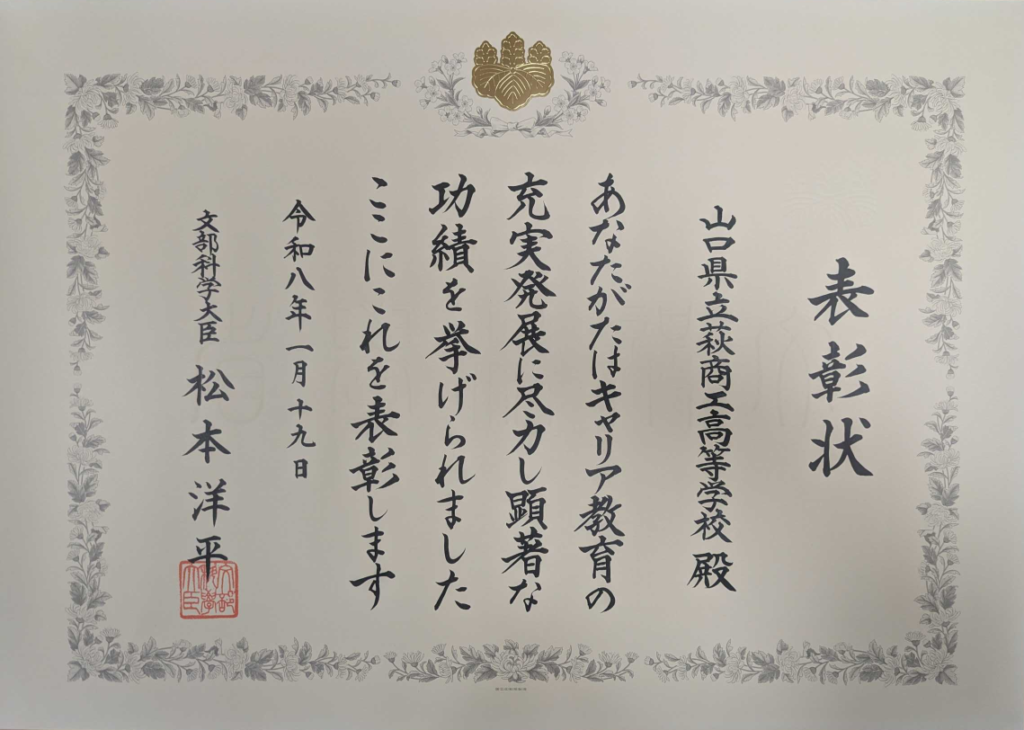 表彰状
山口県立萩商工高等学校 殿
あなたがたはキャリア教育の
充実発展に尽力し顕著な
功績を挙げられました
ここにこれを表彰します
令和八年一月十九日
文部科学大臣 松本洋平